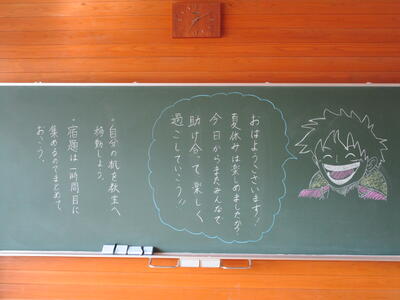 おはようございます！
夏休みは楽しめましたか？
今日からまたみんなで
助け合って楽しく
過ごしていこう！！
・自分の机を教室へ
移動しよう。
・宿題は一時間目に
集めるのでまとめて
おこう。